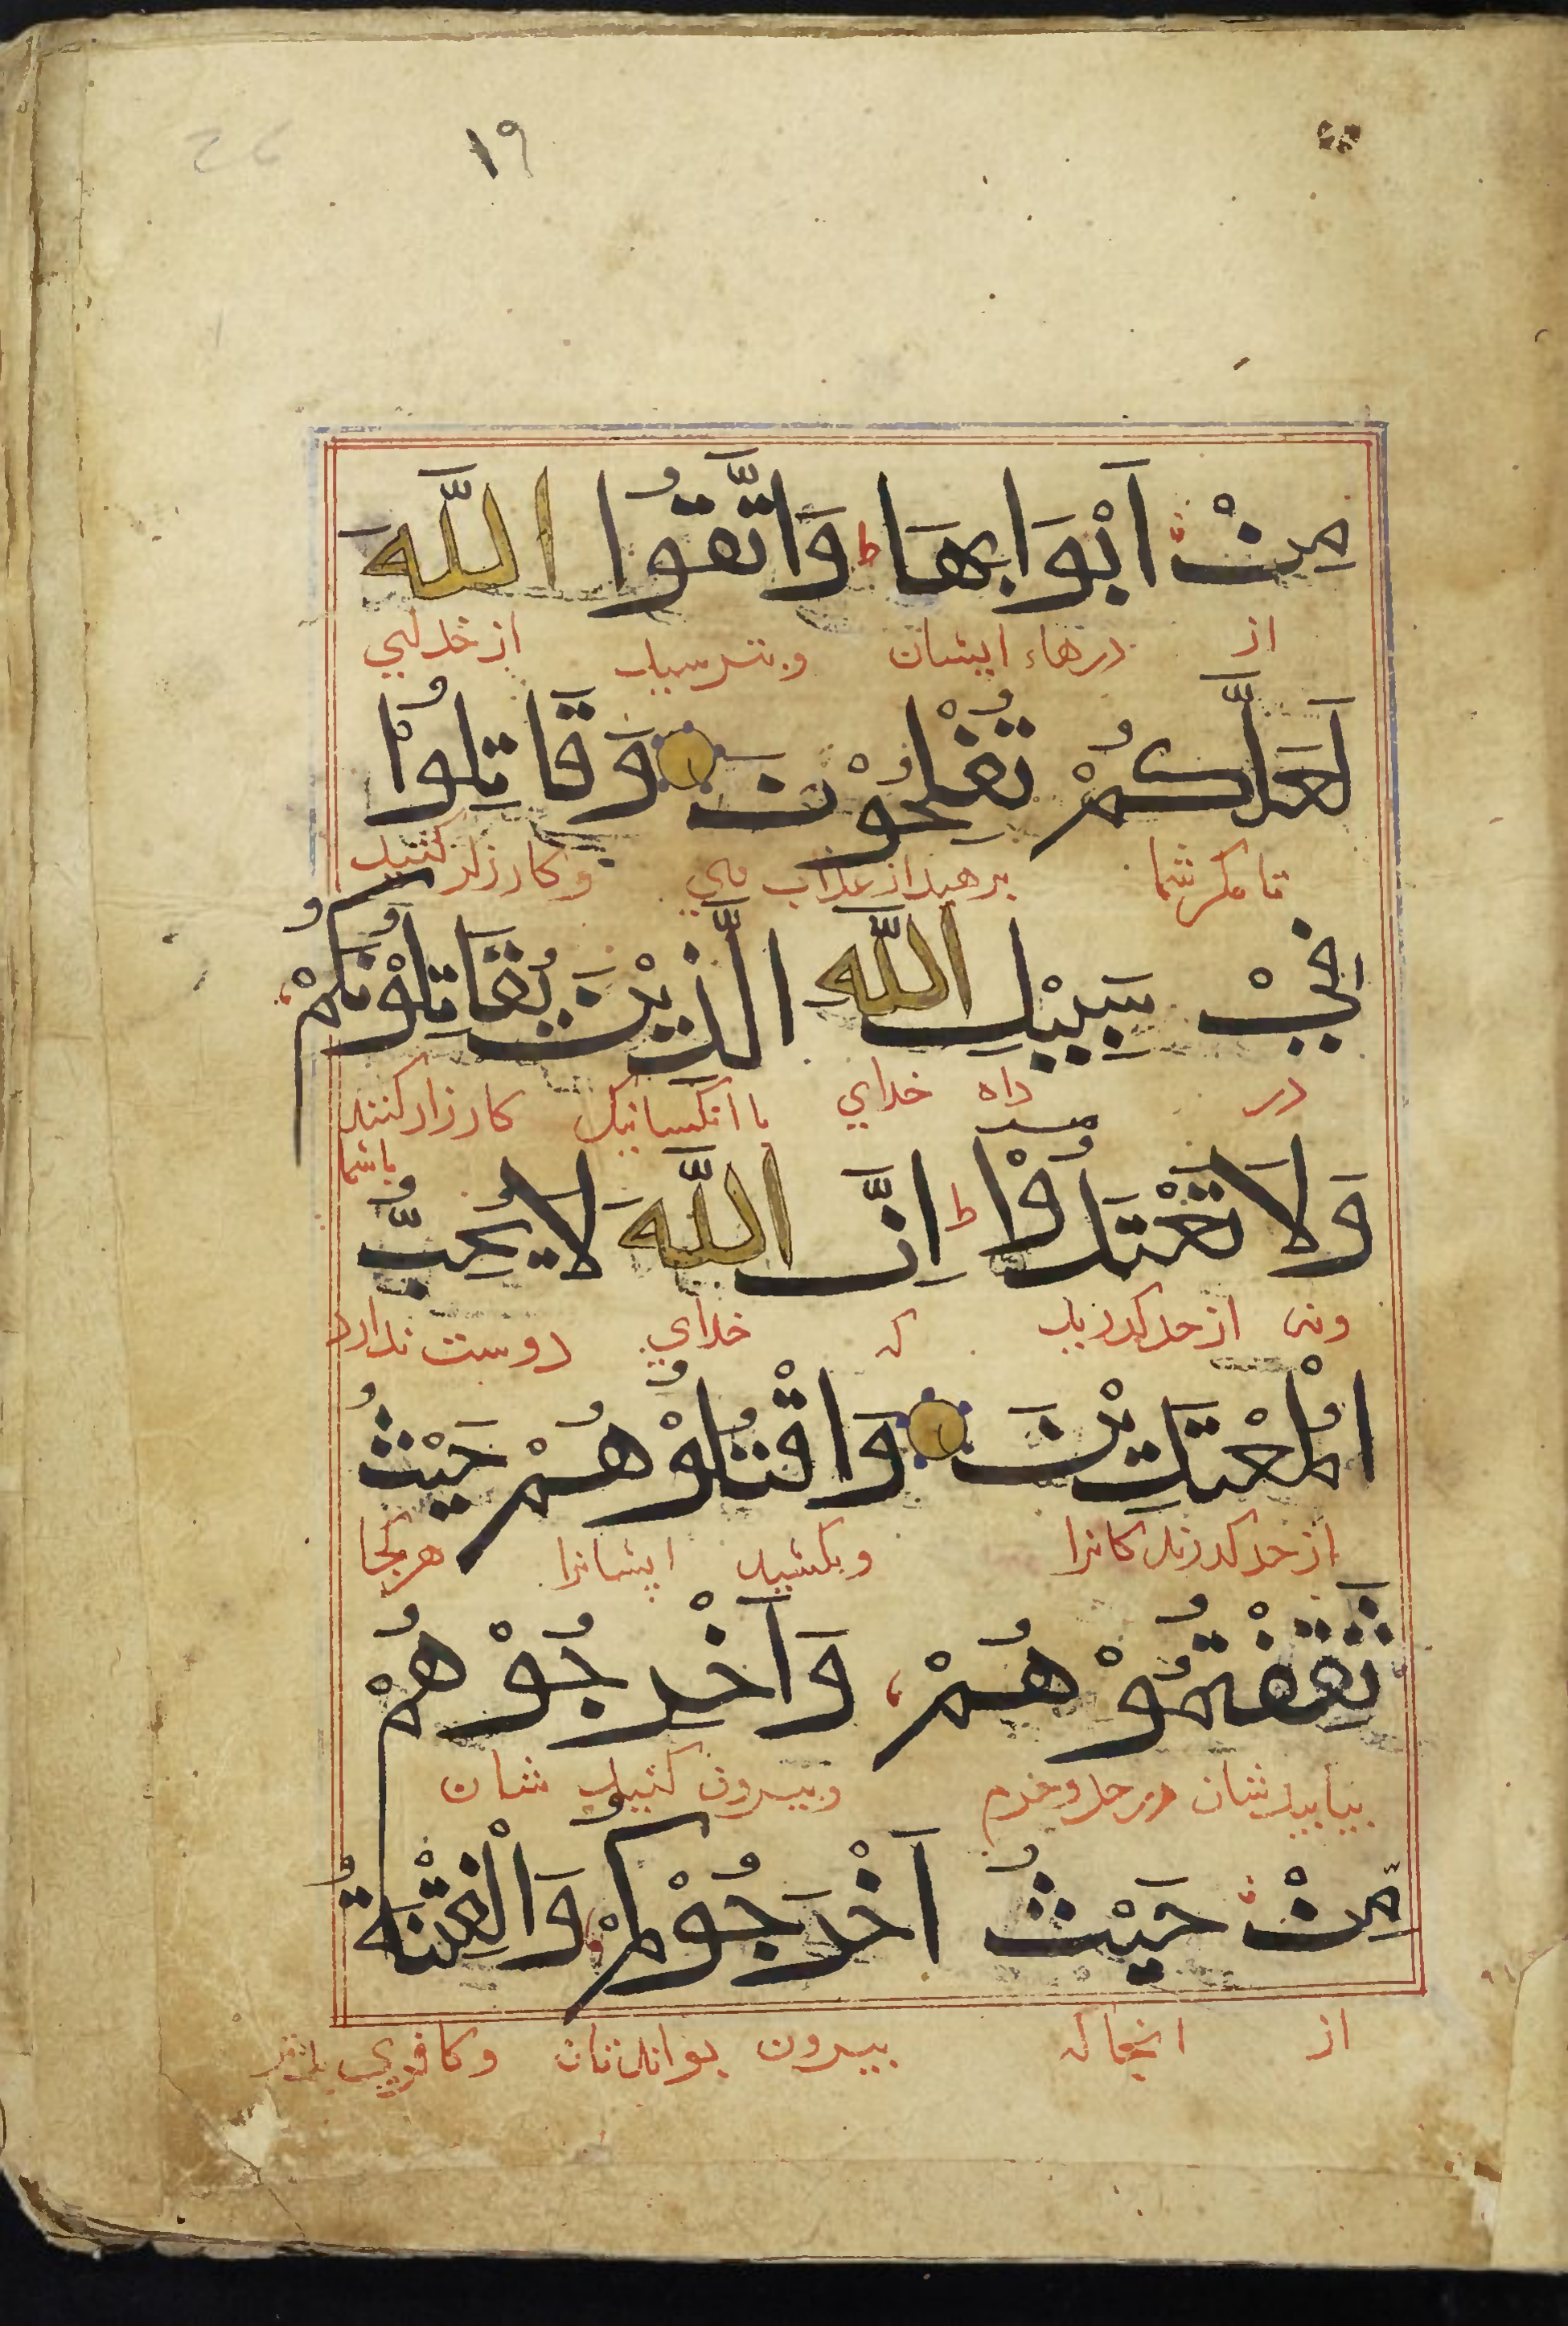 ١٩
مِنْ اَبْوَابِهَا ط وَاتَّقُوا اللّٰهَ
از درهاء ایشان وبترسید از خدای
لَعَلَّكُمْ تُفْلِحُوْنَ وَقَاتِلُوْا
تا مگر شما برهید از عذاب وی وکارزار کنید
فِيْ سَبِيْلِ اللّٰهِ الَّذِيْنَ يُقَاتِلُوْنَكُمْ
در راه خدای با آنکسانیک کارزار کنند
باشما
وَلَا تَعْتَدُوْا ط اِنَّ اللّٰهَ لَا يُحِبُّ
ونه از حد گذرید که خدای دوست ندارد
الْمُعْتَدِيْنَ وَاقْتُلُوْهُمْ حَيْثُ
از حد گذرندکانرا وبکشید ایشانرا هرکجا
ثَقِفْتُمُوْهُمْ وَاَخْرِجُوْهُمْ
بیابیدشان در حل وحرم وبیرون کنید شان
مِّنْ حَيْثُ اَخْرَجُوْكُمْ وَالْفِتْنَةُ
از انجاکه بیرون وکافری